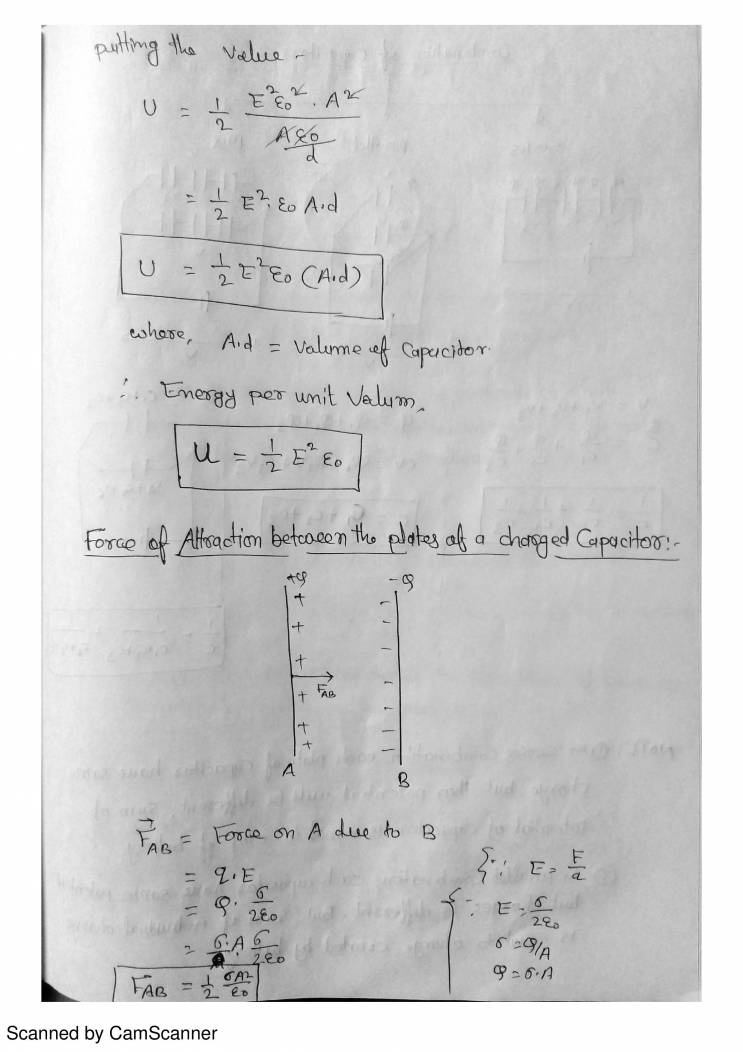 putting the value -
U = 1/2 E²ε₀² · A² / (Aε₀/d)
= 1/2 E², ε₀ A.d
U = 1/2 E²ε₀ (A.d)
where, A.d = Valume of Capacitor.
∴ Energy per unit Valum,
u = 1/2 E² ε₀
Force of Attraction between the plates of a charged Capacitor:-
+Q - Q
+ -
+ -
+ -
F_AB
+ -
+ -
+ -
A B
F⃗_AB = Force on A due to B
= q.E {∵ E = F/q
= Q. σ/2ε₀ {∵ E = σ/2ε₀
= σ.A σ/2ε₀ σ = Q/A
F_AB = 1/2 σA²/ε₀ Q = σ.A
Scanned by CamScanner